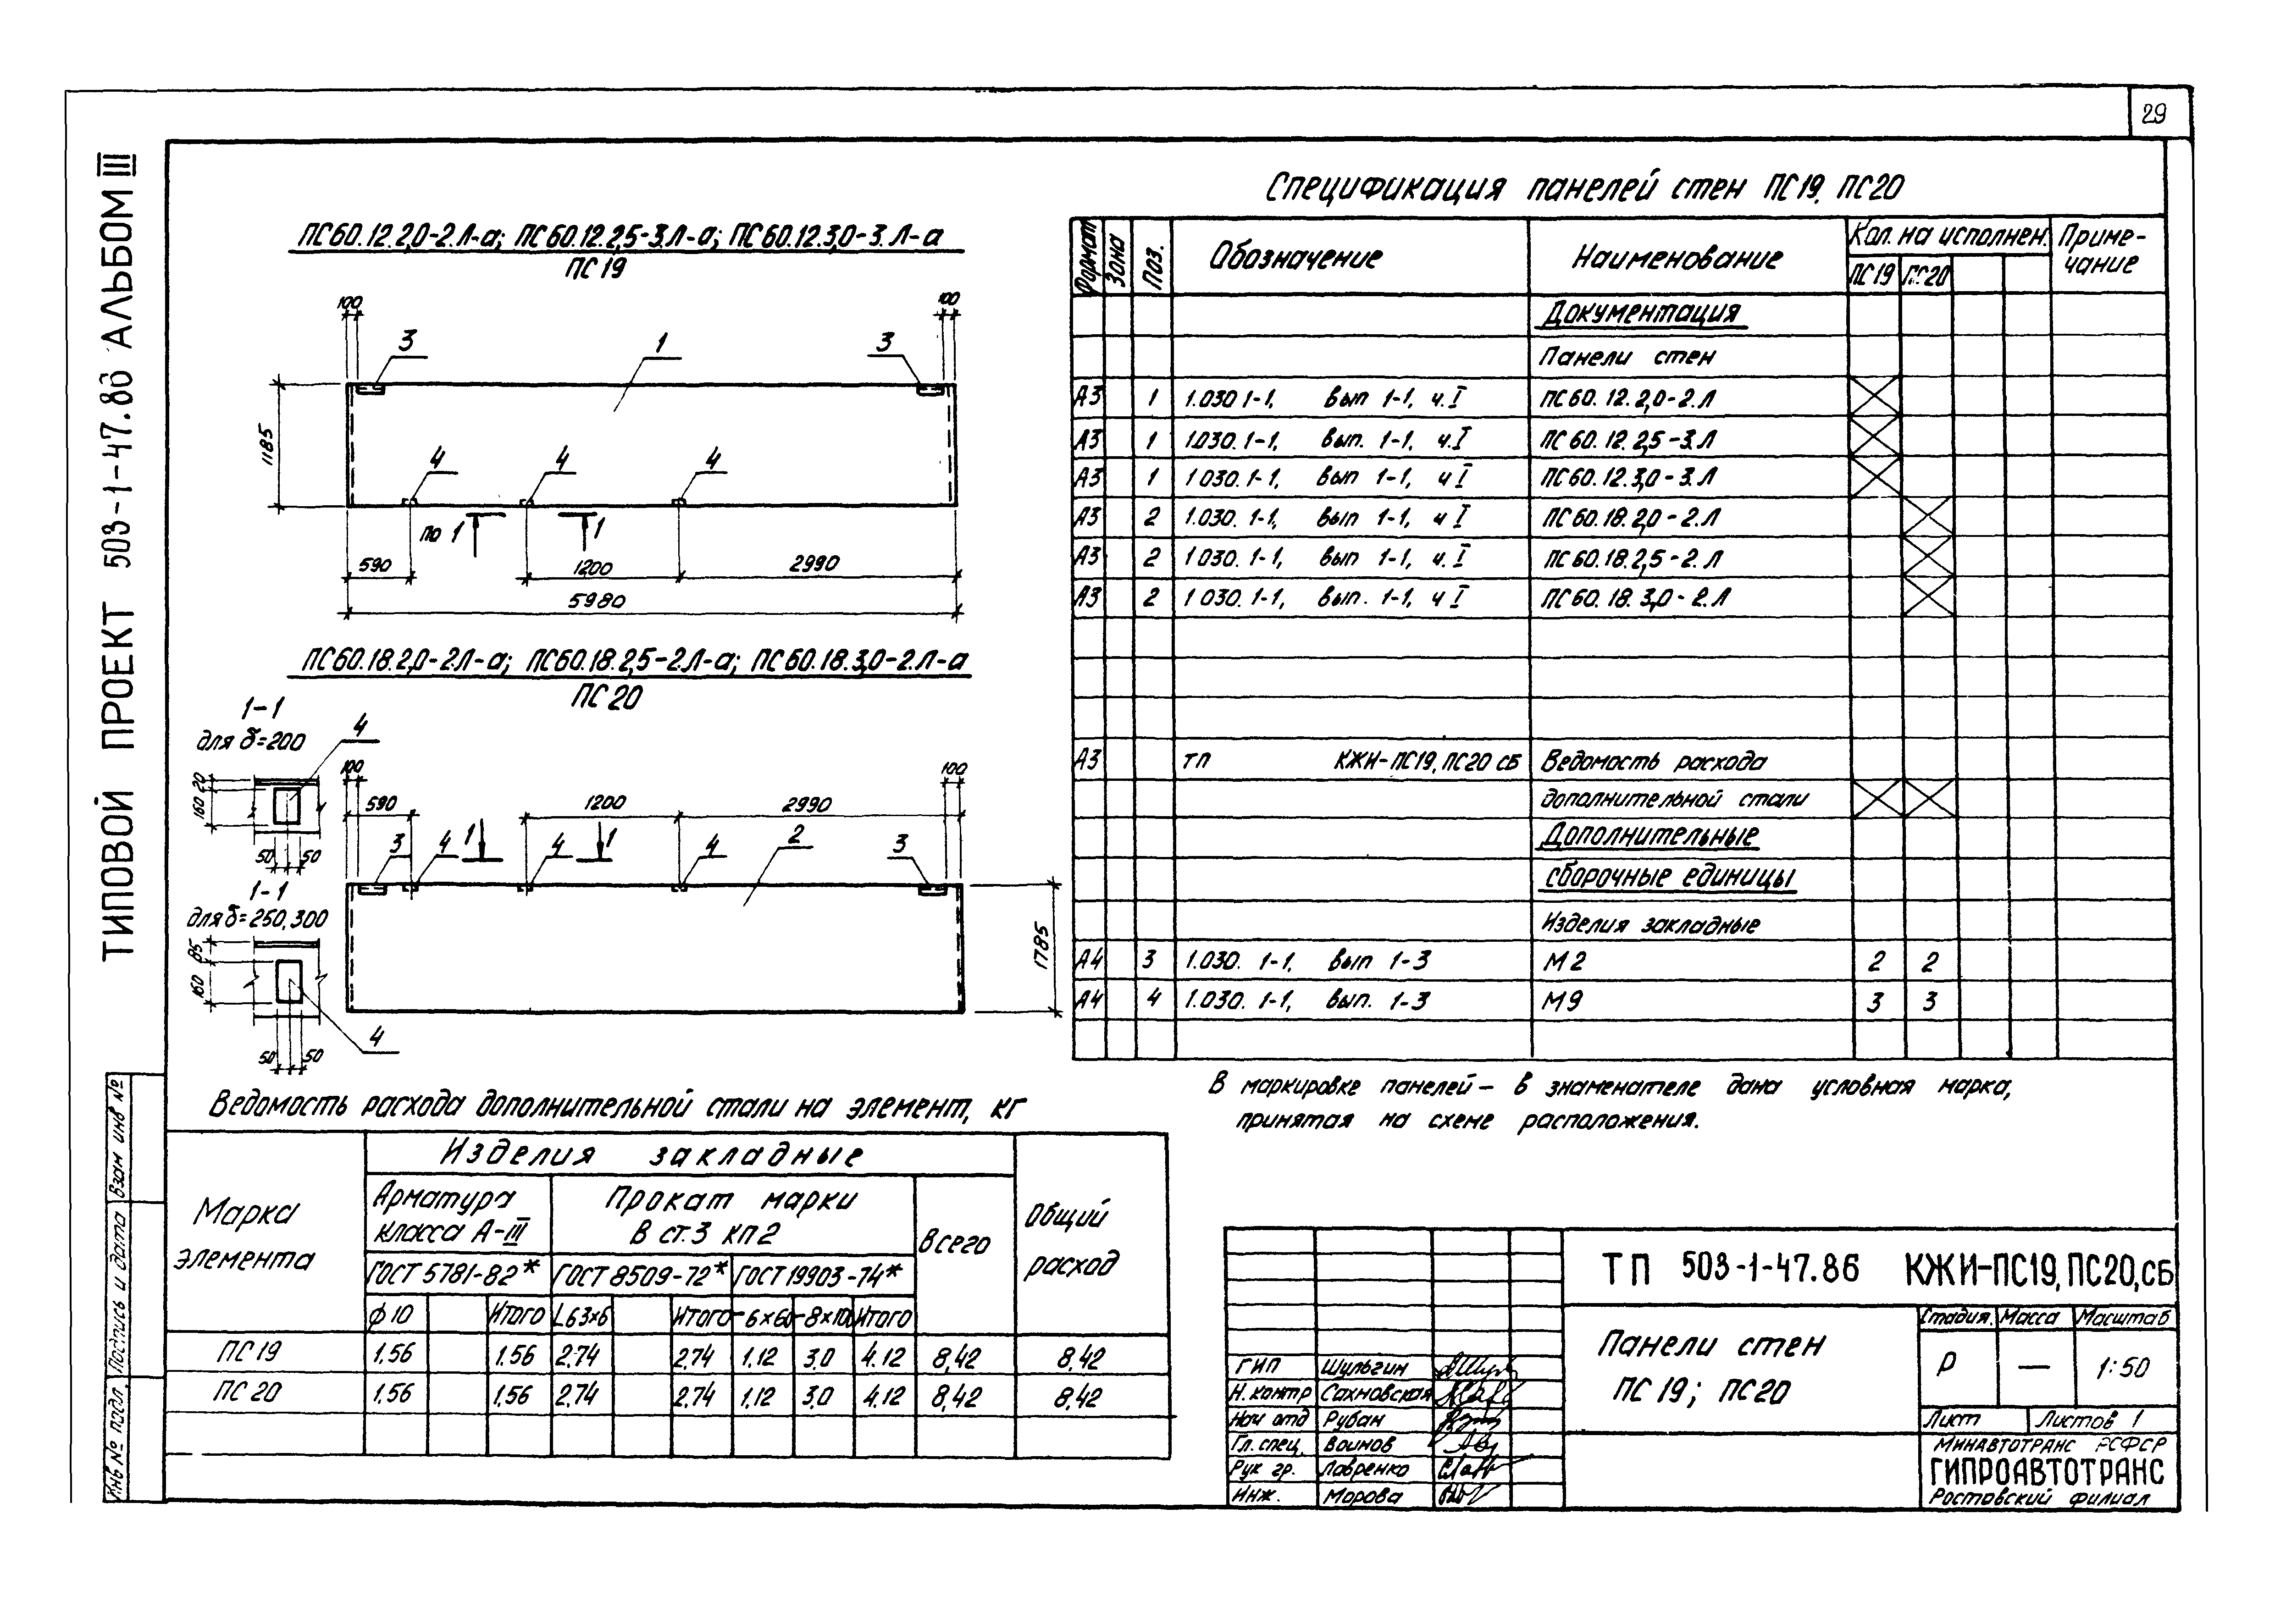 29
ТИПОВОЙ ПРОЕКТ 503-1-47.86 АЛЬБОМ III
ПС60.12.2,0-2.Л-а; ПС60.12.2,5-3.Л-а; ПС60.12.3,0-3.Л-а
ПС19
100
100
3
1
3
1185
4
4
4
по 1
1
590
1200
2990
5980
ПС60.18.2,0-2.Л-а; ПС60.18.2,5-2.Л-а; ПС60.18.3,0-2.Л-а
ПС20
1-1
для δ=200
4
20
160
50
50
1-1
для δ=250,300
85
160
4
50
50
100
100
590
1200
2990
3
4
1
4
1
4
2
3
1785
Спецификация панелей стен ПС19, ПС20
Формат
Зона
Поз.
Обозначение
Наименование
Кол. на исполнен.
ПС19
ПС20
Приме-
чание
Документация
Панели стен
А3 1 1.030 1-1, вып 1-1, ч.I ПС60.12.2,0-2.Л
А3 1 1.030.1-1, вып. 1-1, ч.I ПС60.12.2,5-3.Л
А3 1 1.030.1-1, вып 1-1, ч I ПС60.12.3,0-3.Л
А3 2 1.030.1-1, вып 1-1, ч I ПС60.18.2,0-2.Л
А3 2 1.030.1-1, вып 1-1, ч.I ПС60.18.2,5-2.Л
А3 2 1.030.1-1, вып. 1-1, ч I ПС60.18.3,0-2.Л
А3 ТП КЖИ-ПС19,ПС20 СБ Ведомость расхода
дополнительной стали
Дополнительные
сборочные единицы
Изделия закладные
А4 3 1.030. 1-1, вып 1-3 М2 2 2
А4 4 1.030. 1-1, вып. 1-3 М9 3 3
В маркировке панелей - в знаменателе дана условная марка,
принятая на схеме расположения.
Ведомость расхода дополнительной стали на элемент, кг
Марка
элемента
Изделия закладные
Арматура
класса А-III
Прокат марки
В ст.3 кп2
Всего
Общий
расход
ГОСТ 5781-82*
ГОСТ 8509-72*
ГОСТ 19903-74*
ф10 Итого L63х6 Итого -6х60 -8х100 Итого
ПС19 1,56 1,56 2,74 2,74 1,12 3,0 4,12 8,42 8,42
ПС20 1,56 1,56 2,74 2,74 1,12 3,0 4,12 8,42 8,42
Инв № подл.
Подпись и дата
Взам инв №
ТП 503-1-47.86 КЖИ-ПС19,ПС20,СБ
Панели стен
ПС19; ПС20
Стадия Масса Масштаб
Р — 1:50
Лист Листов 1
Минавтотранс РСФСР
ГИПРОАВТОТРАНС
Ростовский филиал
ГИП Шульгин
Н. контр Сахновская
Нач отд Рубан
Гл. спец. Воинов
Рук гр. Лавренко
Инж. Морова